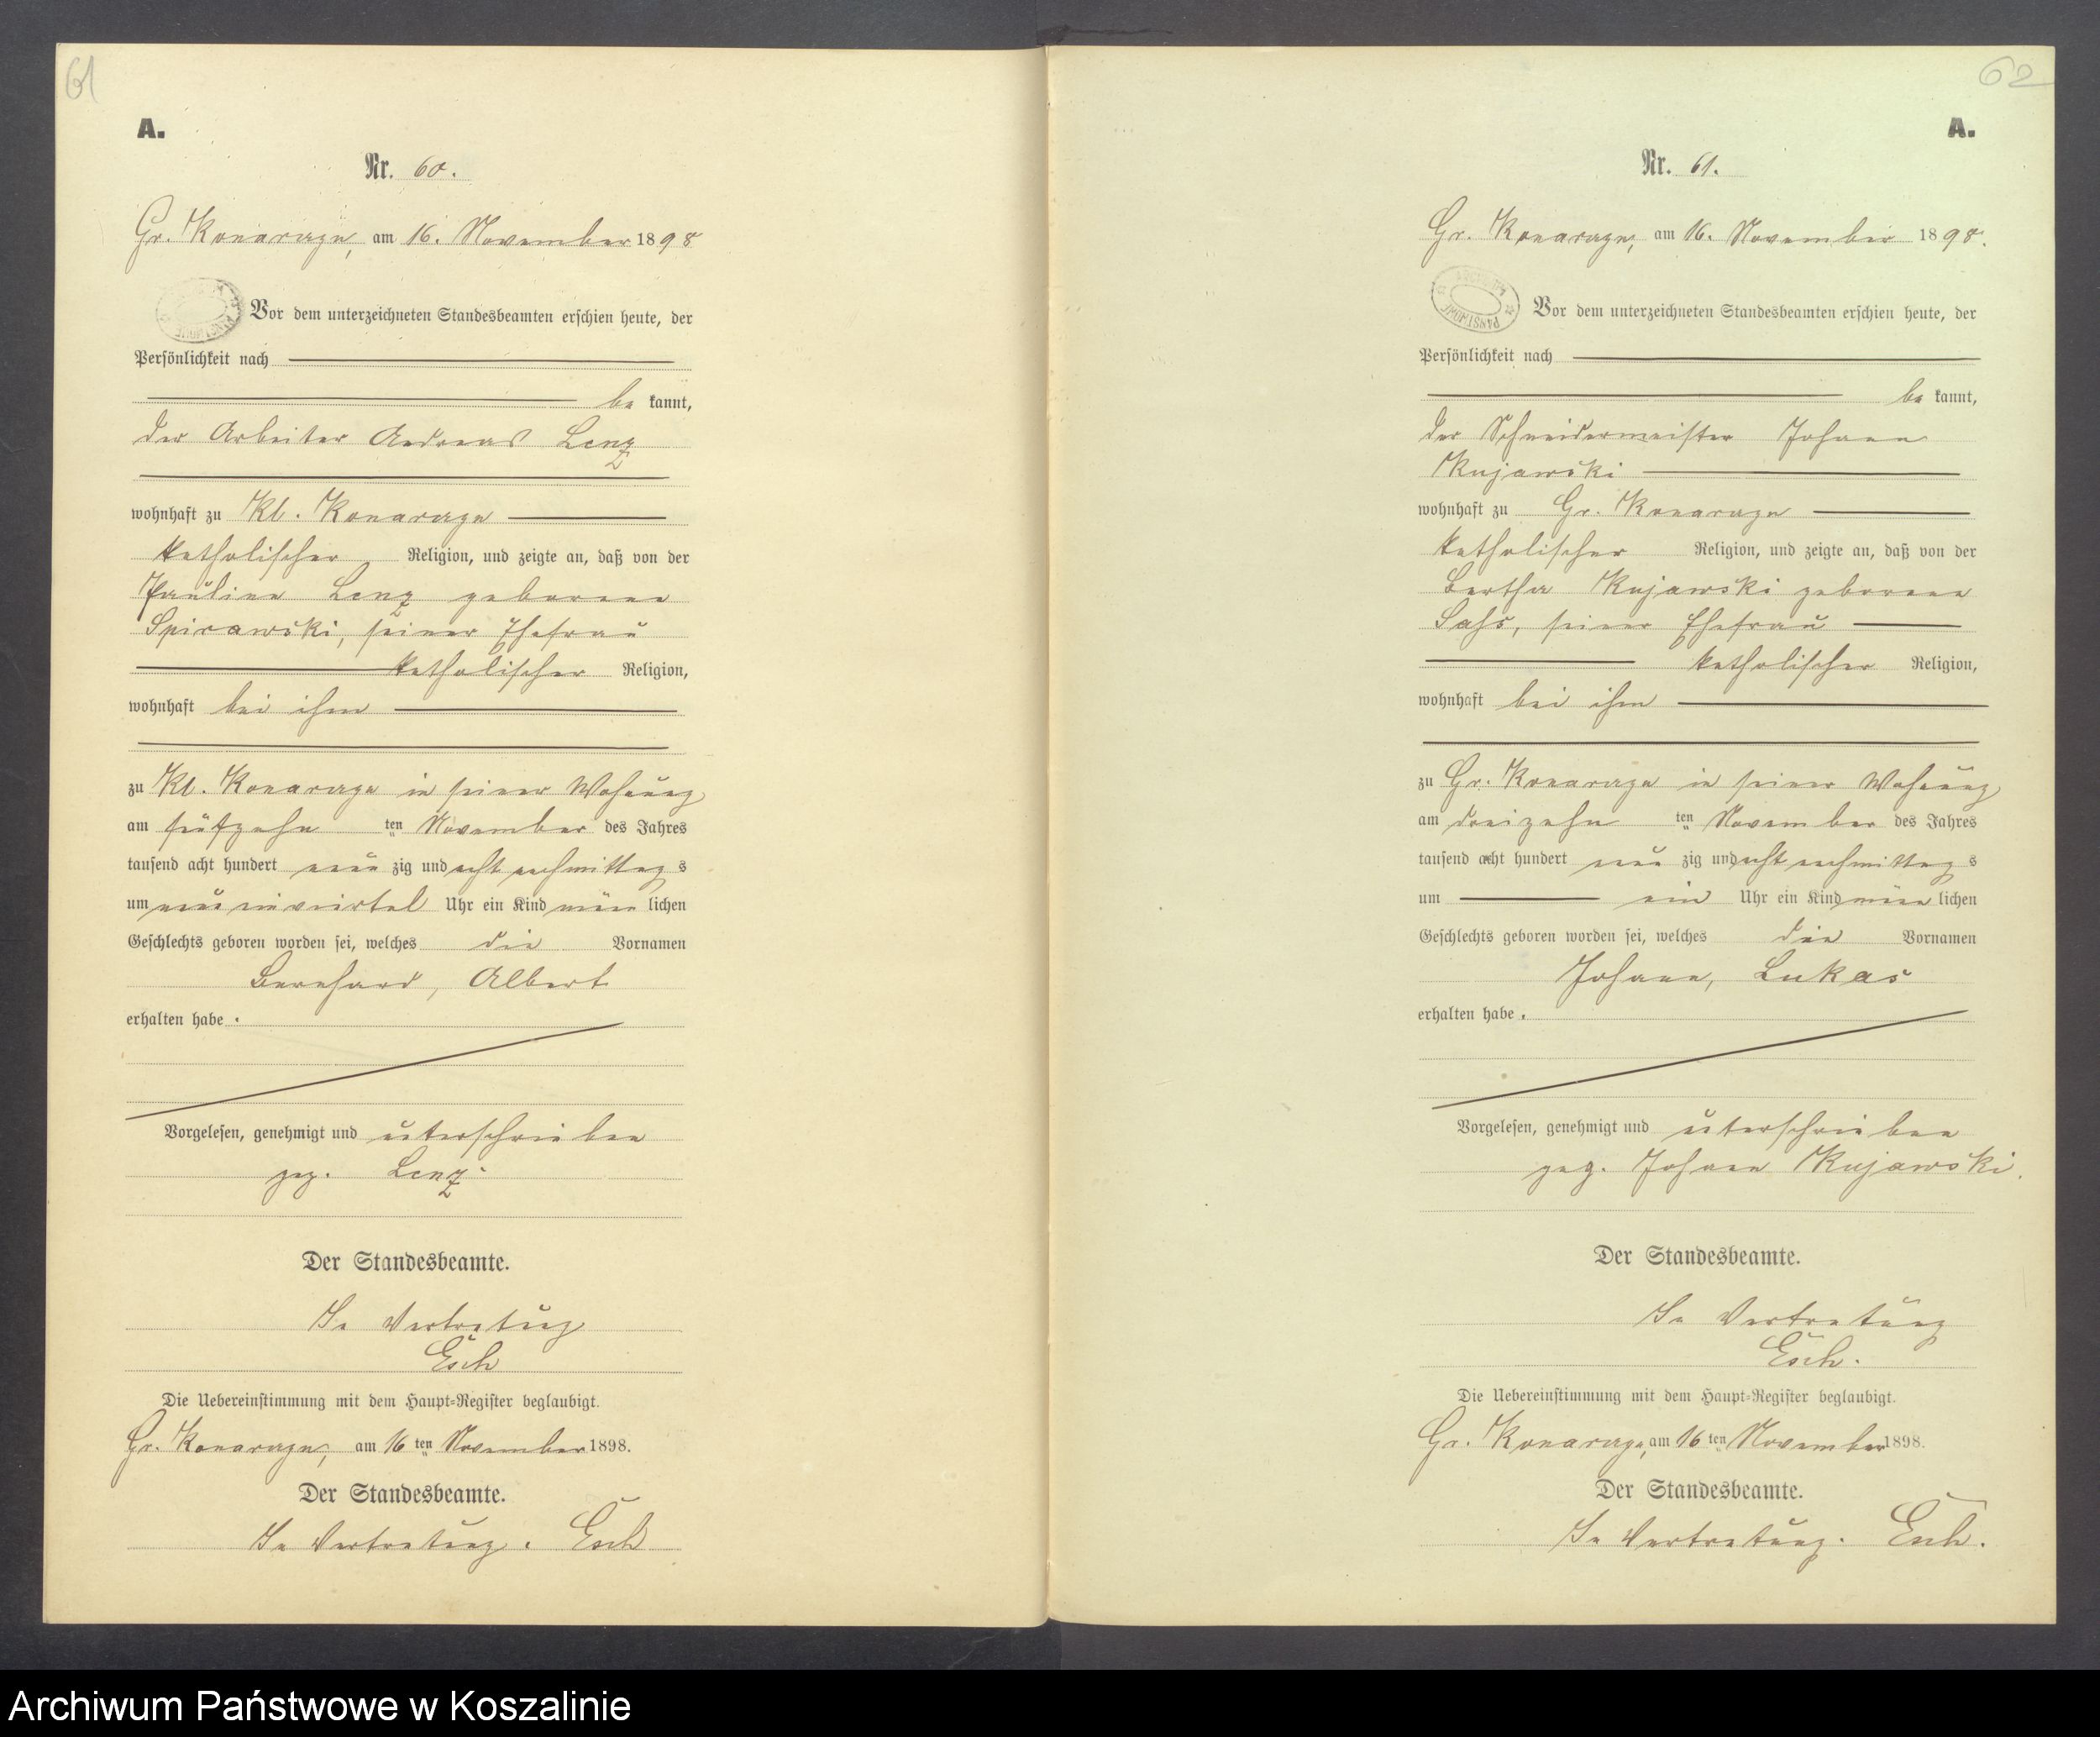 61
A.
Nr. 60.
Gr. Konarczyn, am 16. November 1898
Vor dem unterzeichneten Standesbeamten erschien heute, der
Persönlichkeit nach
be kannt,
der Arbeiter Andreas Lenz
wohnhaft zu Kl. Konarczyn
katholischer Religion, und zeigte an, daß von der
Pauline Lenz geborene
seiner Ehefrau
katholischer Religion,
wohnhaft bei ihm
zu Kl. Konarczyn in seiner Wohnung
am fünfzehn ten November des Jahres
tausend acht hundert neun zig und acht nachmittag s
um neun einviertel Uhr ein Kind männ lichen
Geschlechts geboren worden sei, welches die Vornamen
Bernhard, Albert
erhalten habe.
Vorgelesen, genehmigt und unterschrieben
gez. Lenz.
Der Standesbeamte.
In Vertretung
Esch
Die Uebereinstimmung mit dem Haupt-Register beglaubigt.
Gr. Konarczyn, am 16 ten November 1898.
Der Standesbeamte.
In Vertretung. Esch
62
A.
Nr. 61.
Gr. Konarczyn, am 16. November 1898.
Vor dem unterzeichneten Standesbeamten erschien heute, der
Persönlichkeit nach
be kannt,
der Schneidermeister Johann
Kujawski
wohnhaft zu Gr. Konarczyn
katholischer Religion, und zeigte an, daß von der
Bertha Kujawski geborene
seiner Ehefrau
katholischer Religion,
wohnhaft bei ihm
zu Gr. Konarczyn in seiner Wohnung
am dreizehn ten November des Jahres
tausend acht hundert neun zig und acht nachmittag s
um ein Uhr ein Kind männ lichen
Geschlechts geboren worden sei, welches die Vornamen
Johann, Lukas
erhalten habe.
Vorgelesen, genehmigt und unterschrieben
gez. Johann Kujawski.
Der Standesbeamte.
In Vertretung
Esch.
Die Uebereinstimmung mit dem Haupt-Register beglaubigt.
Gr. Konarczyn, am 16 ten November 1898.
Der Standesbeamte.
In Vertretung. Esch.
Archiwum Państwowe w Koszalinie